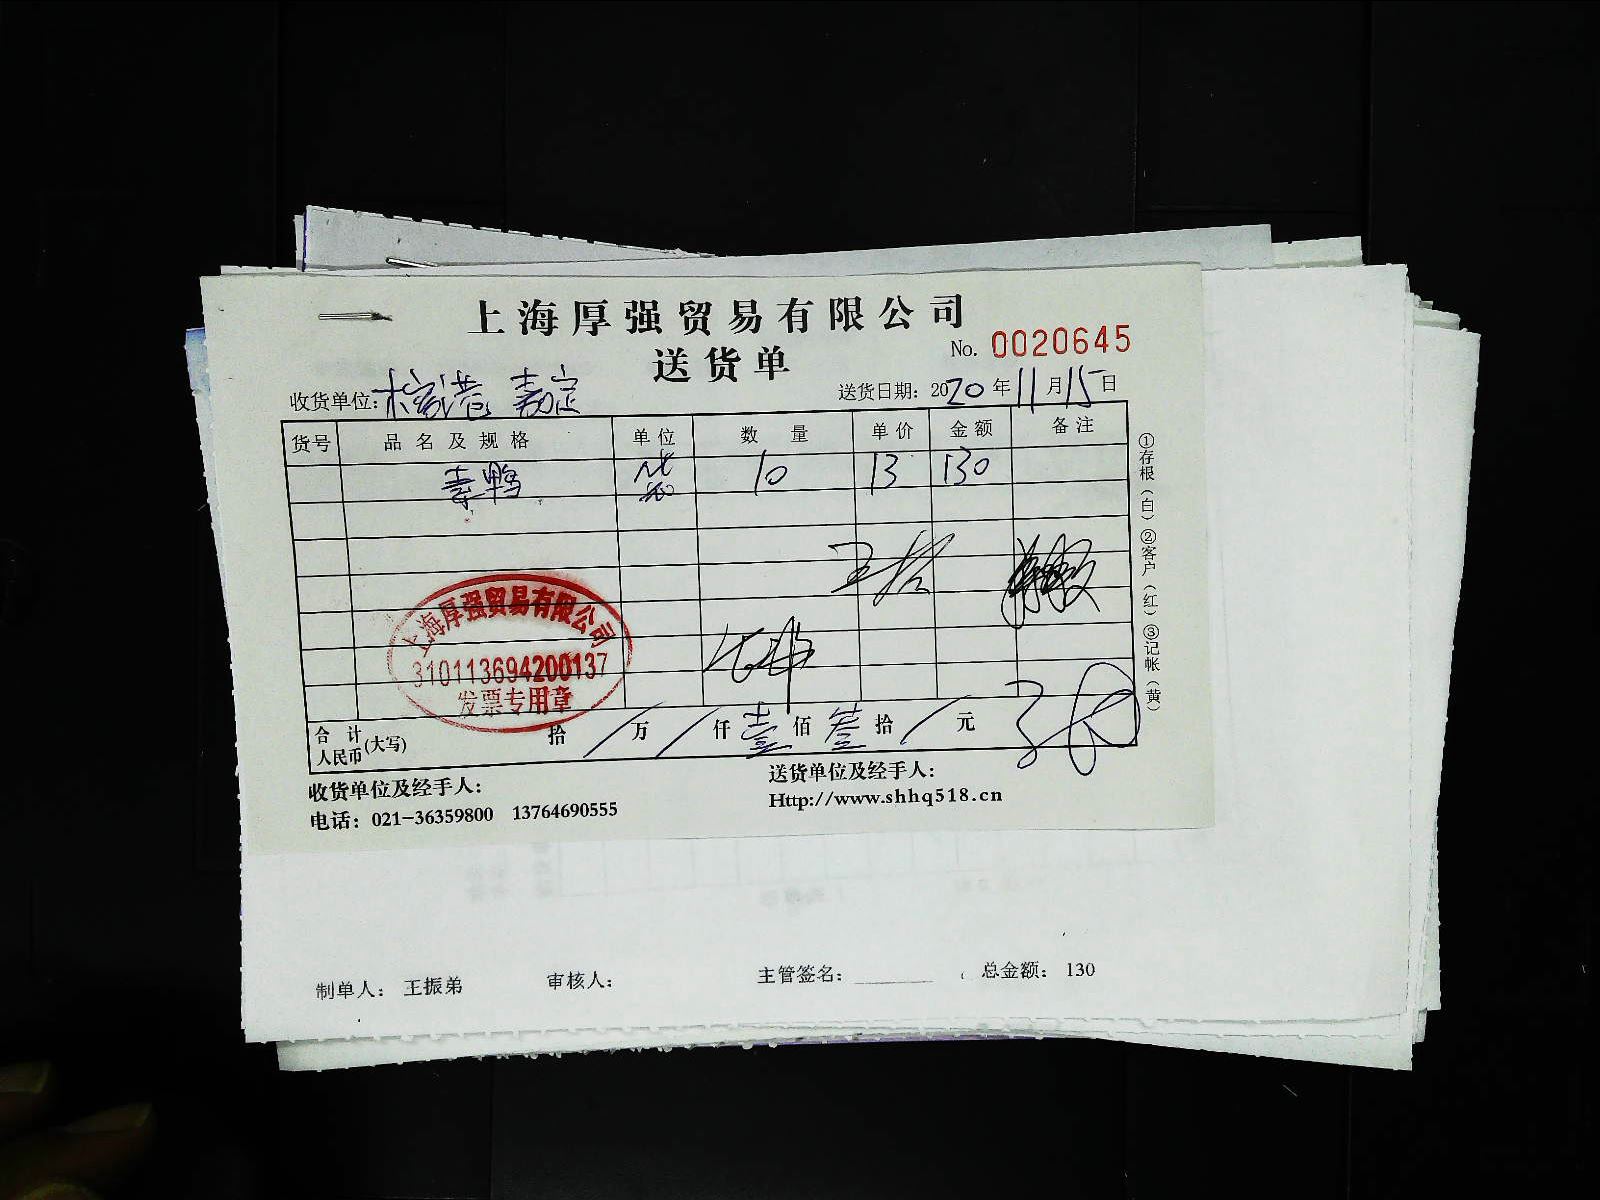 上海厚强贸易有限公司
送货单
No. 0020645
收货单位: 榕港 嘉定
送货日期: 2020年11月15日
货号 品名及规格 单位 数量 单价 金额 备注
素鸭 袋 10 13 130
①存根(白)②客户(红)③记帐(黄)
上海厚强贸易有限公司
310113694200137
发票专用章
合计人民币(大写) 拾/万/仟壹佰叁拾/元
收货单位及经手人:
送货单位及经手人:
电话: 021-36359800 13764690555
Http://www.shhq518.cn
制单人: 王振弟 审核人: 主管签名: 总金额: 130